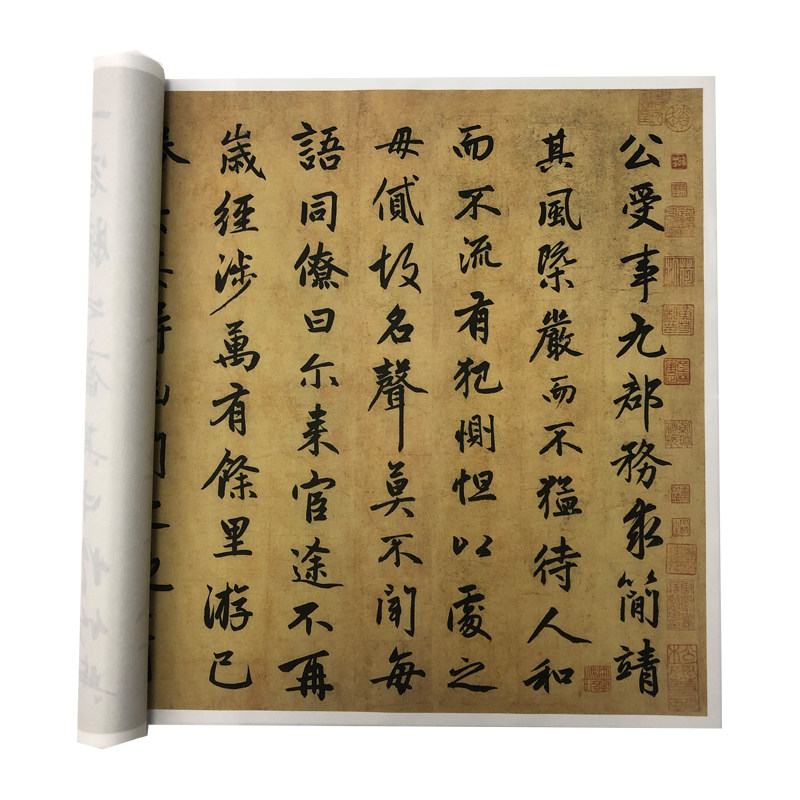 公受事九部務求簡靖
其風槩嚴而不猛待人和
而不流有犯惻怛以處之
毋貳故名聲莫不聞每
語同僚曰尔来官途不再
歳經涉萬有餘里游已